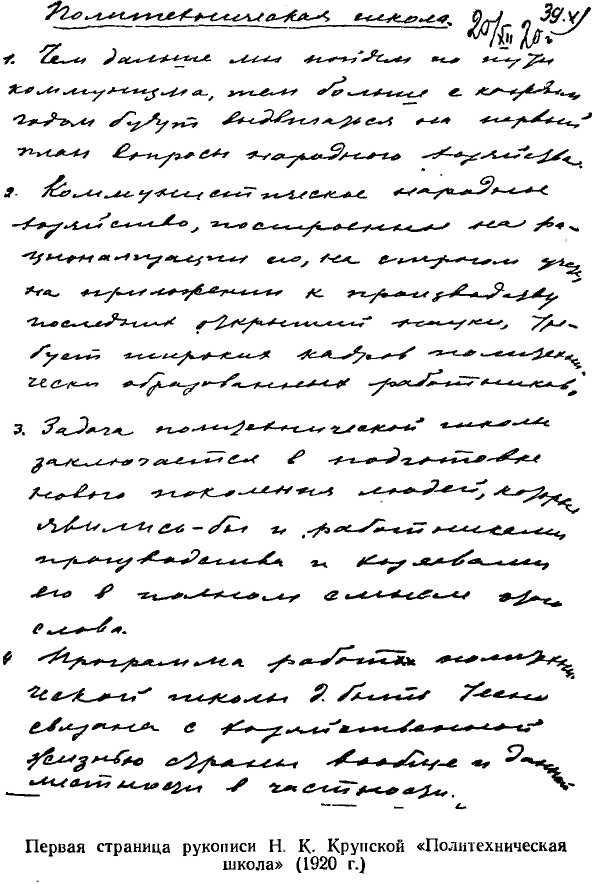 Политехническая школа.
20/XII 20 г
1. Чем дальше мы пойдем по пути
коммунизма, тем больше с каждым
годом будут выдвигаться на первый
план вопросы народного хозяйства.
2. Коммунистическое народное
хозяйство, построенное на ра-
ционализации его, на строгом учете,
на приложении к производству
последних открытий науки, тре-
бует широких кадров политехни-
чески образованных работников.
3. Задача политехнической школы
заключается в подготовке
нового поколения людей, которые
явились-бы и работниками
производства и хозяевами
его в полном смысле этого
слова.
4 Программа работ политехни-
ческой школы д. быть тесно
связана с хозяйственной
жизнью страны вообще и данной
местности в частности.
Первая страница рукописи Н. К. Крупской «Политехническая
школа» (1920 г.)